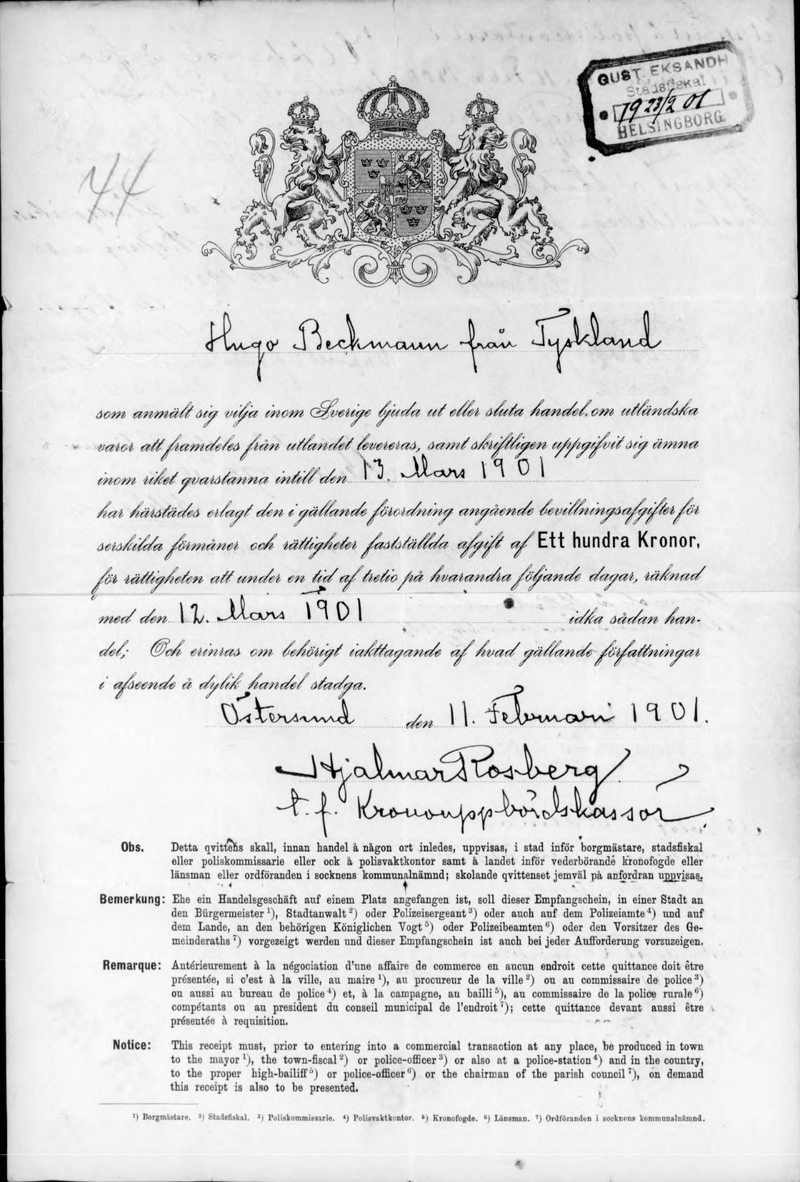 GUST. EKSANDH
Stadsfiskal
1923/2 01
HELSINGBORG.
44
Hugo Beckmann från Tyskland
som anmält sig vilja inom Sverige bjuda ut eller sluta handel om utländska
varor att framdeles från utlandet levereras, samt skriftligen uppgifvit sig ämna
inom riket qvarstanna intill den 13. Mars 1901
har härstädes erlagt den i gällande förordning angående bevillningsafgifter för
serskilda förmåner och rättigheter fastställda afgift af Ett hundra Kronor,
för rättigheten att under en tid af tretio på hvarandra följande dagar, räknad
med den 12. Mars 1901 idka sådan han-
del; Och erinras om behörigt iakttagande af hvad gällande författningar
i afseende å dylik handel stadga.
Östersund den 11. Februari 1901.
Hjalmar Rosberg
t. f. Kronouppbördskassör
Obs. Detta qvittens skall, innan handel å någon ort inledes, uppvisas, i stad inför borgmästare, stadsfiskal
eller poliskommissarie eller ock å polisvaktkontor samt å landet inför vederbörande kronofogde eller
länsman eller ordföranden i socknens kommunalnämnd; skolande qvittenset jemväl på anfordran uppvisas.
Bemerkung: Ehe ein Handelsgeschäft auf einem Platz angefangen ist, soll dieser Empfangschein, in einer Stadt an
den Bürgermeister ¹), Stadtanwalt ²) oder Polizeisergeant ³) oder auch auf dem Polizeiamte ⁴) und auf
dem Lande, an den behörigen Königlichen Vogt ⁵) oder Polizeibeamten ⁶) oder den Vorsitzer des Ge-
meinderaths ⁷) vorgezeigt werden und dieser Empfangschein ist auch bei jeder Aufforderung vorzuzeigen.
Remarque: Antérieurement à la négociation d'une affaire de commerce en aucun endroit cette quittance doit être
présentée, si c'est à la ville, au maire ¹), au procureur de la ville ²) ou au commissaire de police ³)
ou aussi au bureau de police ⁴) et, à la campagne, au bailli ⁵), au commissaire de la police rurale ⁶)
compétants ou au president du conseil municipal de l'endroit ⁷); cette quittance devant aussi être
présentée à requisition.
Notice: This receipt must, prior to entering into a commercial transaction at any place, be produced in town
to the mayor ¹), the town-fiscal ²) or police-officer ³) or also at a police-station ⁴) and in the country,
to the proper high-bailiff ⁵) or police-officer ⁶) or the chairman of the parish council ⁷), on demand
this receipt is also to be presented.
¹) Borgmästare. ²) Stadsfiskal. ³) Poliskommissarie. ⁴) Polisvaktkontor. ⁵) Kronofogde. ⁶) Länsman. ⁷) Ordföranden i socknens kommunalnämnd.